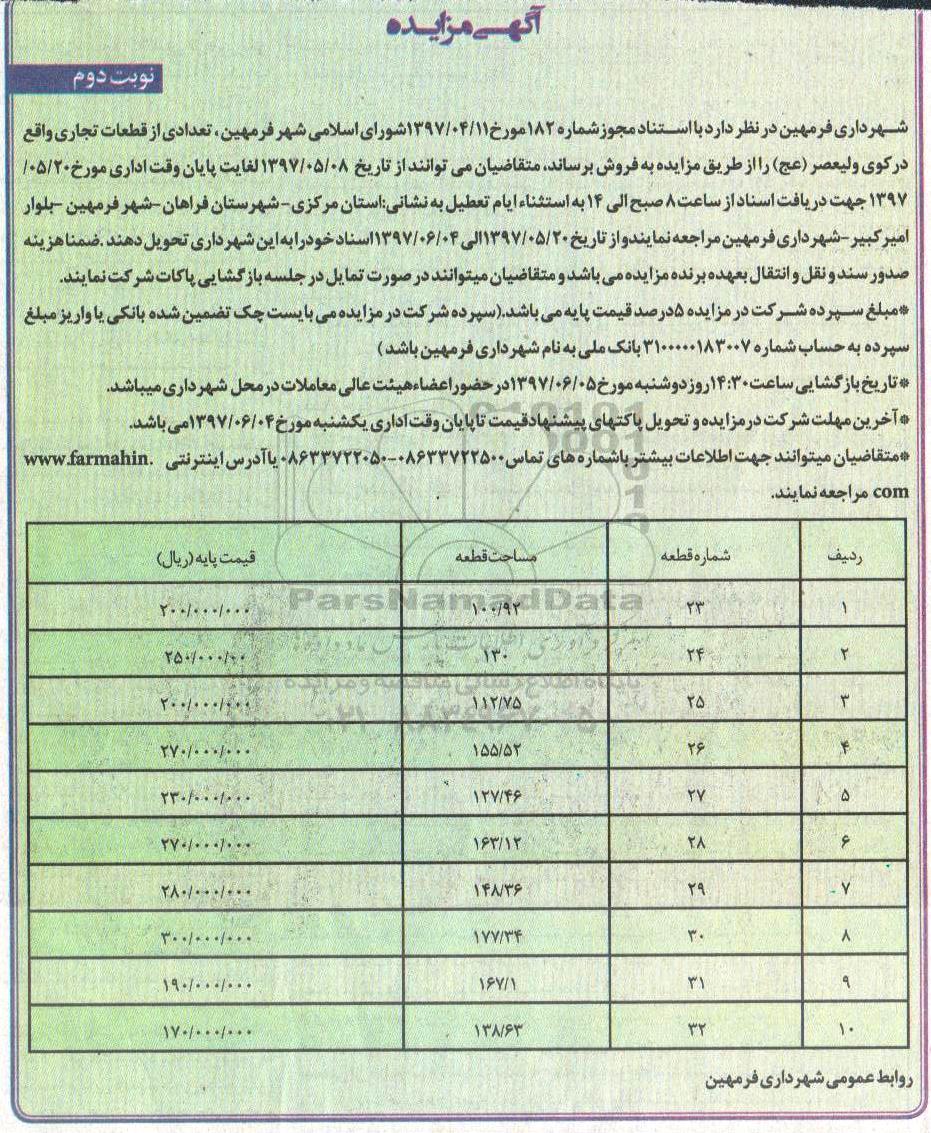 آگهی مزایده
نوبت دوم
شهرداری فرمهین در نظر دارد با استناد مجوز شماره ۱۸۲ مورخ ۱۳۹۷/۰۴/۱۱ شورای اسلامی شهر فرمهین، تعدادی از قطعات تجاری واقع
در کوی ولیعصر (عج) را از طریق مزایده به فروش برساند، متقاضیان می توانند از تاریخ ۱۳۹۷/۰۵/۰۸ لغایت پایان وقت اداری مورخ ۰۵/۲۰/
۱۳۹۷ جهت دریافت اسناد از ساعت ۸ صبح الی ۱۴ به استثناء ایام تعطیل به نشانی: استان مرکزی - شهرستان فراهان - شهر فرمهین - بلوار
امیرکبیر - شهرداری فرمهین مراجعه نمایند و از تاریخ ۱۳۹۷/۰۵/۲۰ الی ۱۳۹۷/۰۶/۰۴ اسناد خود را به این شهرداری تحویل دهند. ضمنا هزینه
صدور سند و نقل و انتقال بعهده برنده مزایده می باشد و متقاضیان میتوانند در صورت تمایل در جلسه بازگشایی پاکات شرکت نمایند.
*مبلغ سپرده شرکت در مزایده ۵ درصد قیمت پایه می باشد. (سپرده شرکت در مزایده می بایست چک تضمین شده بانکی یا واریز مبلغ
سپرده به حساب شماره ۳۱۰۰۰۰۰۱۸۳۰۰۷ بانک ملی به نام شهرداری فرمهین باشد)
*تاریخ بازگشایی ساعت ۱۴:۳۰ روز دوشنبه مورخ ۱۳۹۷/۰۶/۰۵ در حضور اعضاء هیئت عالی معاملات در محل شهرداری میباشد.
*آخرین مهلت شرکت در مزایده و تحویل پاکتهای پیشنهاد قیمت تا پایان وقت اداری یکشنبه مورخ ۱۳۹۷/۰۶/۰۴ می باشد.
*متقاضیان میتوانند جهت اطلاعات بیشتر با شماره های تماس ۰۸۶۳۳۷۲۲۵۰۰-۰۸۶۳۳۷۲۲۰۵۰ یا آدرس اینترنتی www.farmahin.
com مراجعه نمایند.
ردیف شماره قطعه مساحت قطعه قیمت پایه (ریال)
۱ ۲۳ ۱۰۰/۹۲ ۲۰۰/۰۰۰/۰۰۰
۲ ۲۴ ۱۳۰ ۲۵۰/۰۰۰/۰۰
۳ ۲۵ ۱۱۲/۷۵ ۲۰۰/۰۰۰/۰۰۰
۴ ۲۶ ۱۵۵/۵۲ ۲۷۰/۰۰۰/۰۰۰
۵ ۲۷ ۱۲۷/۴۶ ۲۳۰/۰۰۰/۰۰۰
۶ ۲۸ ۱۶۳/۱۲ ۲۷۰/۰۰۰/۰۰۰
۷ ۲۹ ۱۴۸/۳۶ ۲۸۰/۰۰۰/۰۰۰
۸ ۳۰ ۱۷۷/۳۴ ۳۰۰/۰۰۰/۰۰۰
۹ ۳۱ ۱۶۷/۱ ۱۹۰/۰۰۰/۰۰۰
۱۰ ۳۲ ۱۳۸/۶۳ ۱۷۰/۰۰۰/۰۰۰
ParsNamadData
پایگاه اطلاع رسانی مناقصه و مزایده
روابط عمومی شهرداری فرمهین